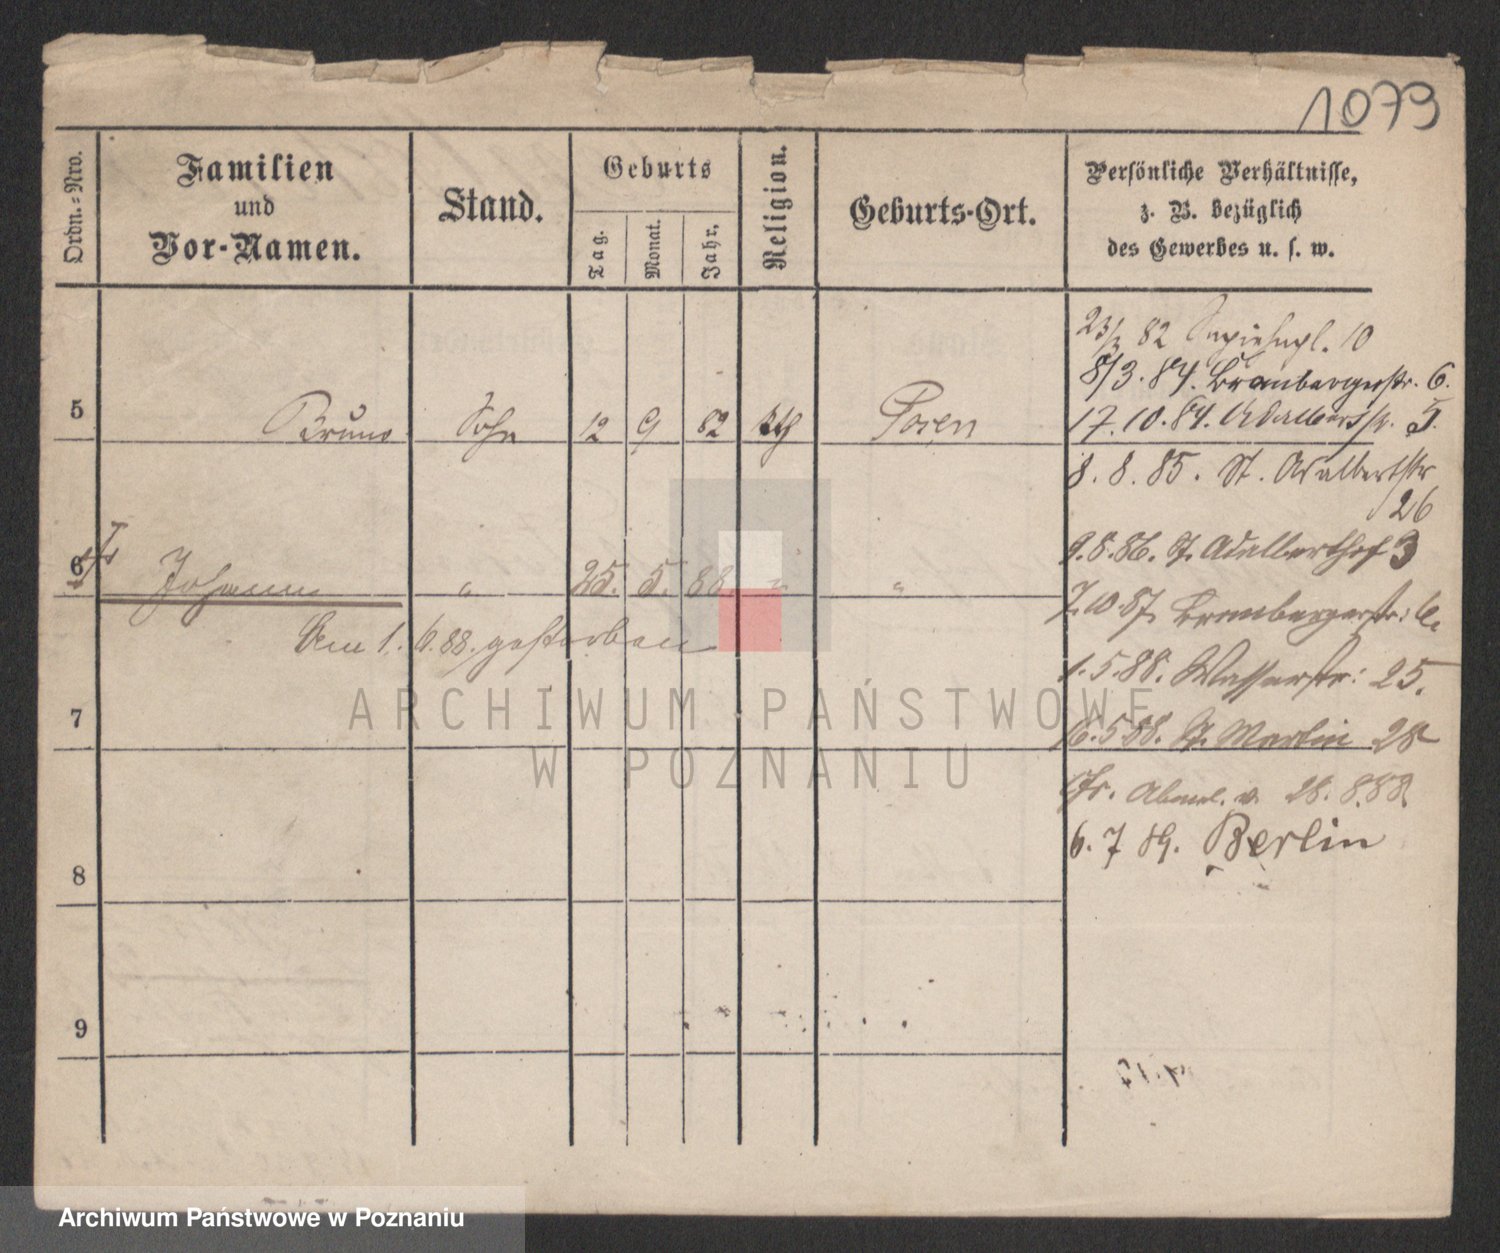 1079
Ordn.-Nro.
Familien
und
Vor-Namen.
Stand.
Geburts
Tag.
Monat.
Jahr.
Religion.
Geburts-Ort.
Persönliche Verhältnisse,
z. B. bezüglich
des Gewerbes u. s. w.
23/3 82 Sapiehapl. 10
8/3. 84. Brombergerstr. 6.
5 Bruno Sohn 12 9 82 kth Posen
17. 10. 84. Adalbertstr. 5.
8. 8. 85. St. Adalbertstr
26
9. 8. 86. St. Adalberthof 3
6 Johann " 25. 5. 88 " "
7. 10 87. Brombergerstr: 6.
Am 1. 6. 88. gestorben
1. 5. 88. Wasserstr: 25.
ARCHIWUM PAŃSTWOWE
W POZNANIU
7
16. 5 88. St. Martin 28
Abmel. v. 28. 8. 88
6. 7 89. Berlin
8
9
Archiwum Państwowe w Poznaniu